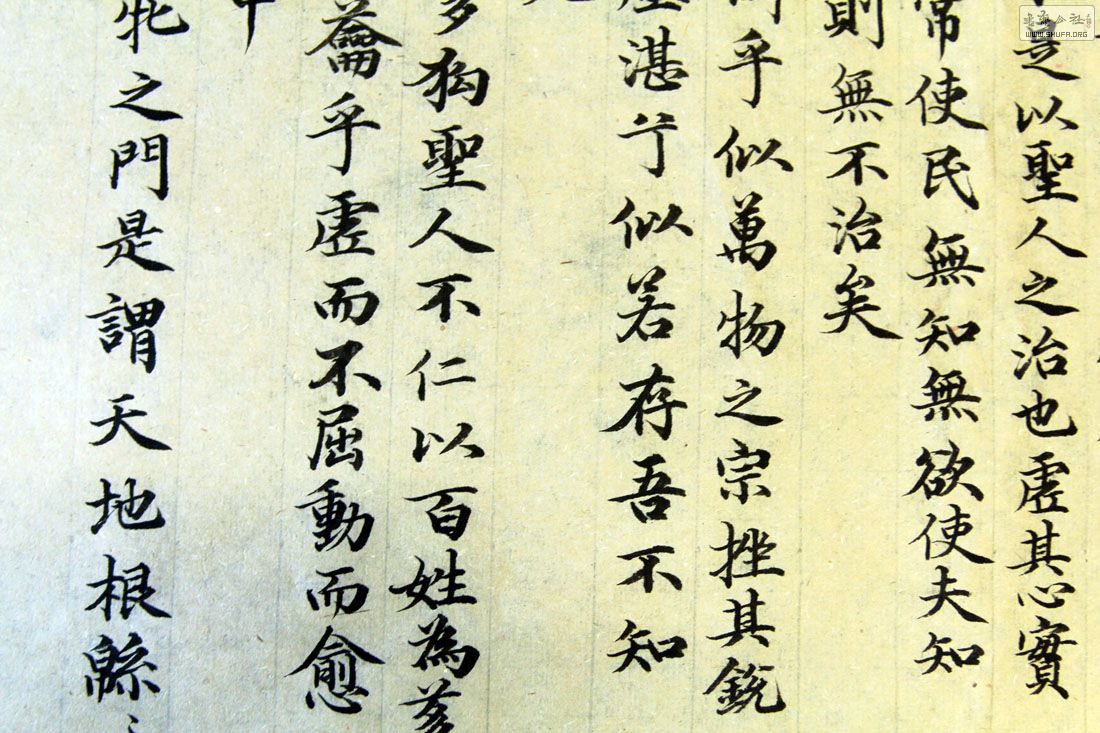 是以聖人之治也虛其心實
常使民無知無欲使夫知
則無不治矣
乎似萬物之宗挫其銳
湛兮似若存吾不知
芻狗聖人不仁以百姓為芻
籥乎虛而不屈動而愈
中
牝之門是謂天地根緜〻
WWW.SHUFA.ORG